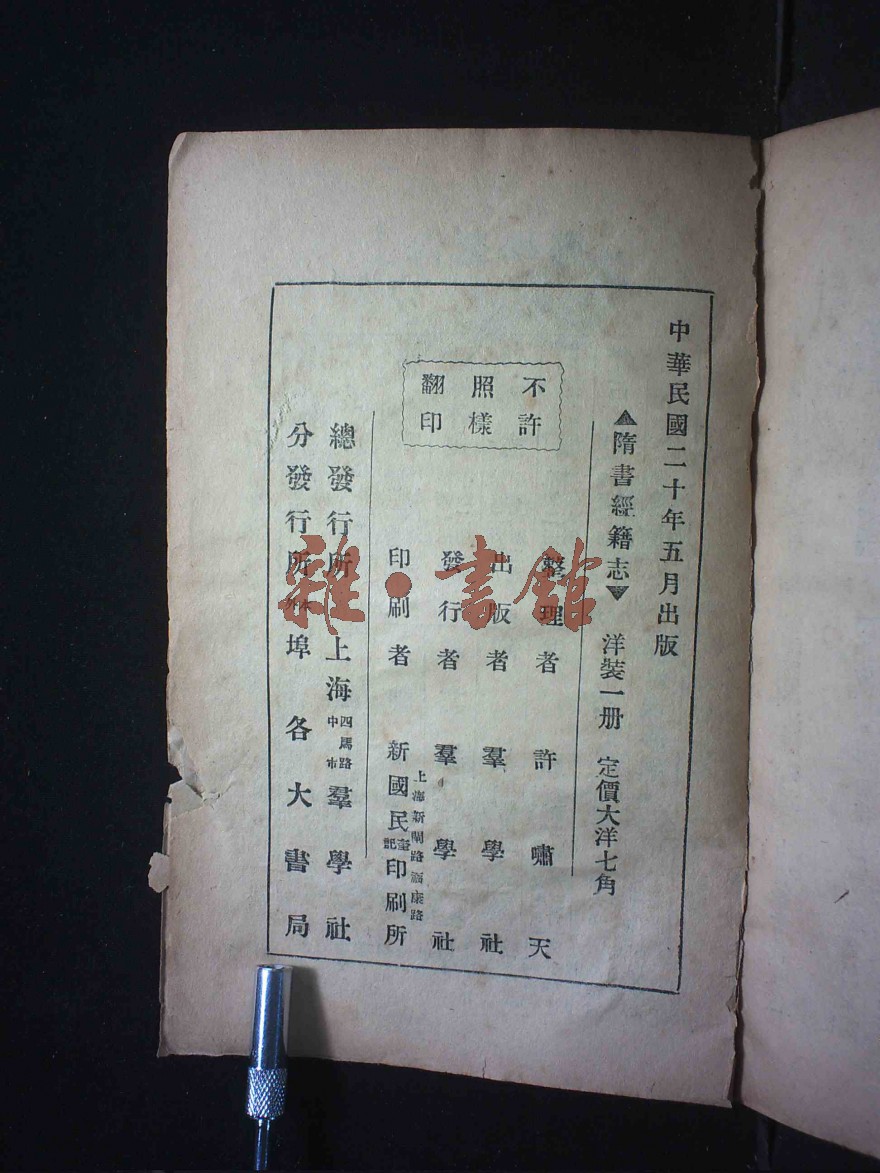 中華民國二十年五月出版
▲隋書經籍志▼ 洋裝一册 定價大洋七角
不許照樣翻印
整理者 許嘯天
出版者 羣學社
發行者 羣學社
印刷者 上海新閘路福康路 新國民印刷所
總發行所 上海四馬路中市羣學社
分發行所 本外埠各大書局
雜·書館